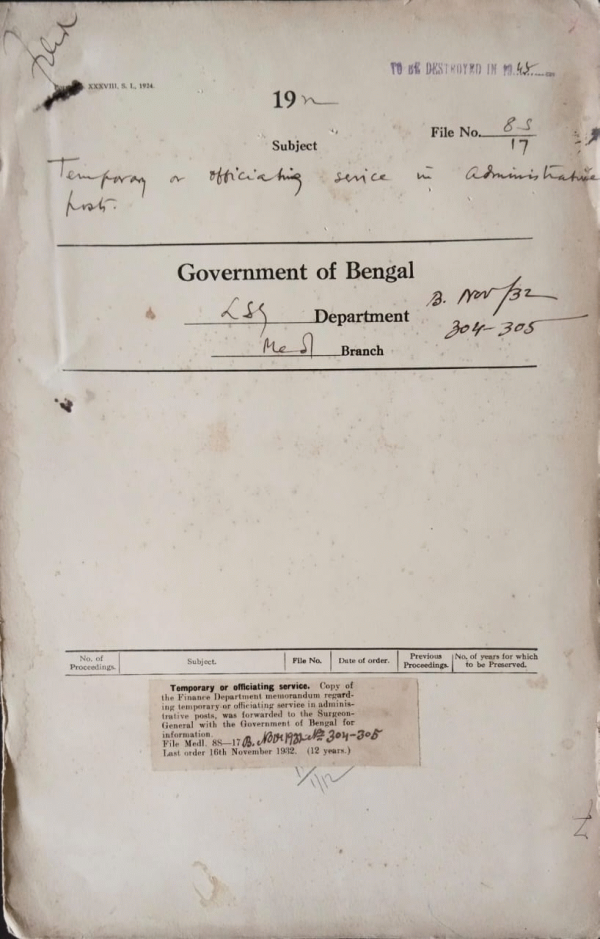 TO BE DESTROYED IN 19 45
XXXVIII. S. I., 1924.
19
File No. 8S/17
Subject
Temporary or officiating service in administrative
posts.
Government of Bengal
LSG Department
B. Nov/32
304-305
Medl Branch
No. of Proceedings. Subject. File No. Date of order. Previous Proceedings. No. of years for which to be Preserved.
Temporary or officiating service. Copy of
the Finance Department memorandum regard-
ing temporary or officiating service in adminis-
trative posts, was forwarded to the Surgeon-
General with the Government of Bengal for
information.
File Medl. 8S—17 B. Nov 1932 Nos 304-305
Last order 16th November 1932. (12 years.)